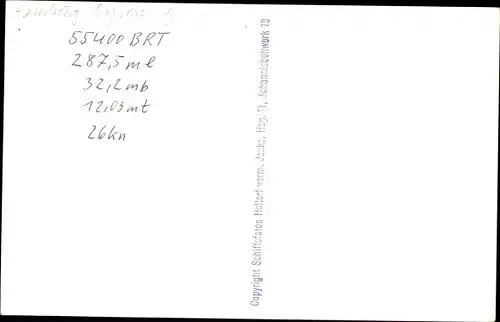 55400 BRT
287,5 m l
32,2 mb
12,03 mt
26 kn
Copyright Schiffsfotos Hattorf vorm. Jaske, Hbg. 11, Johannisbollwerk 19